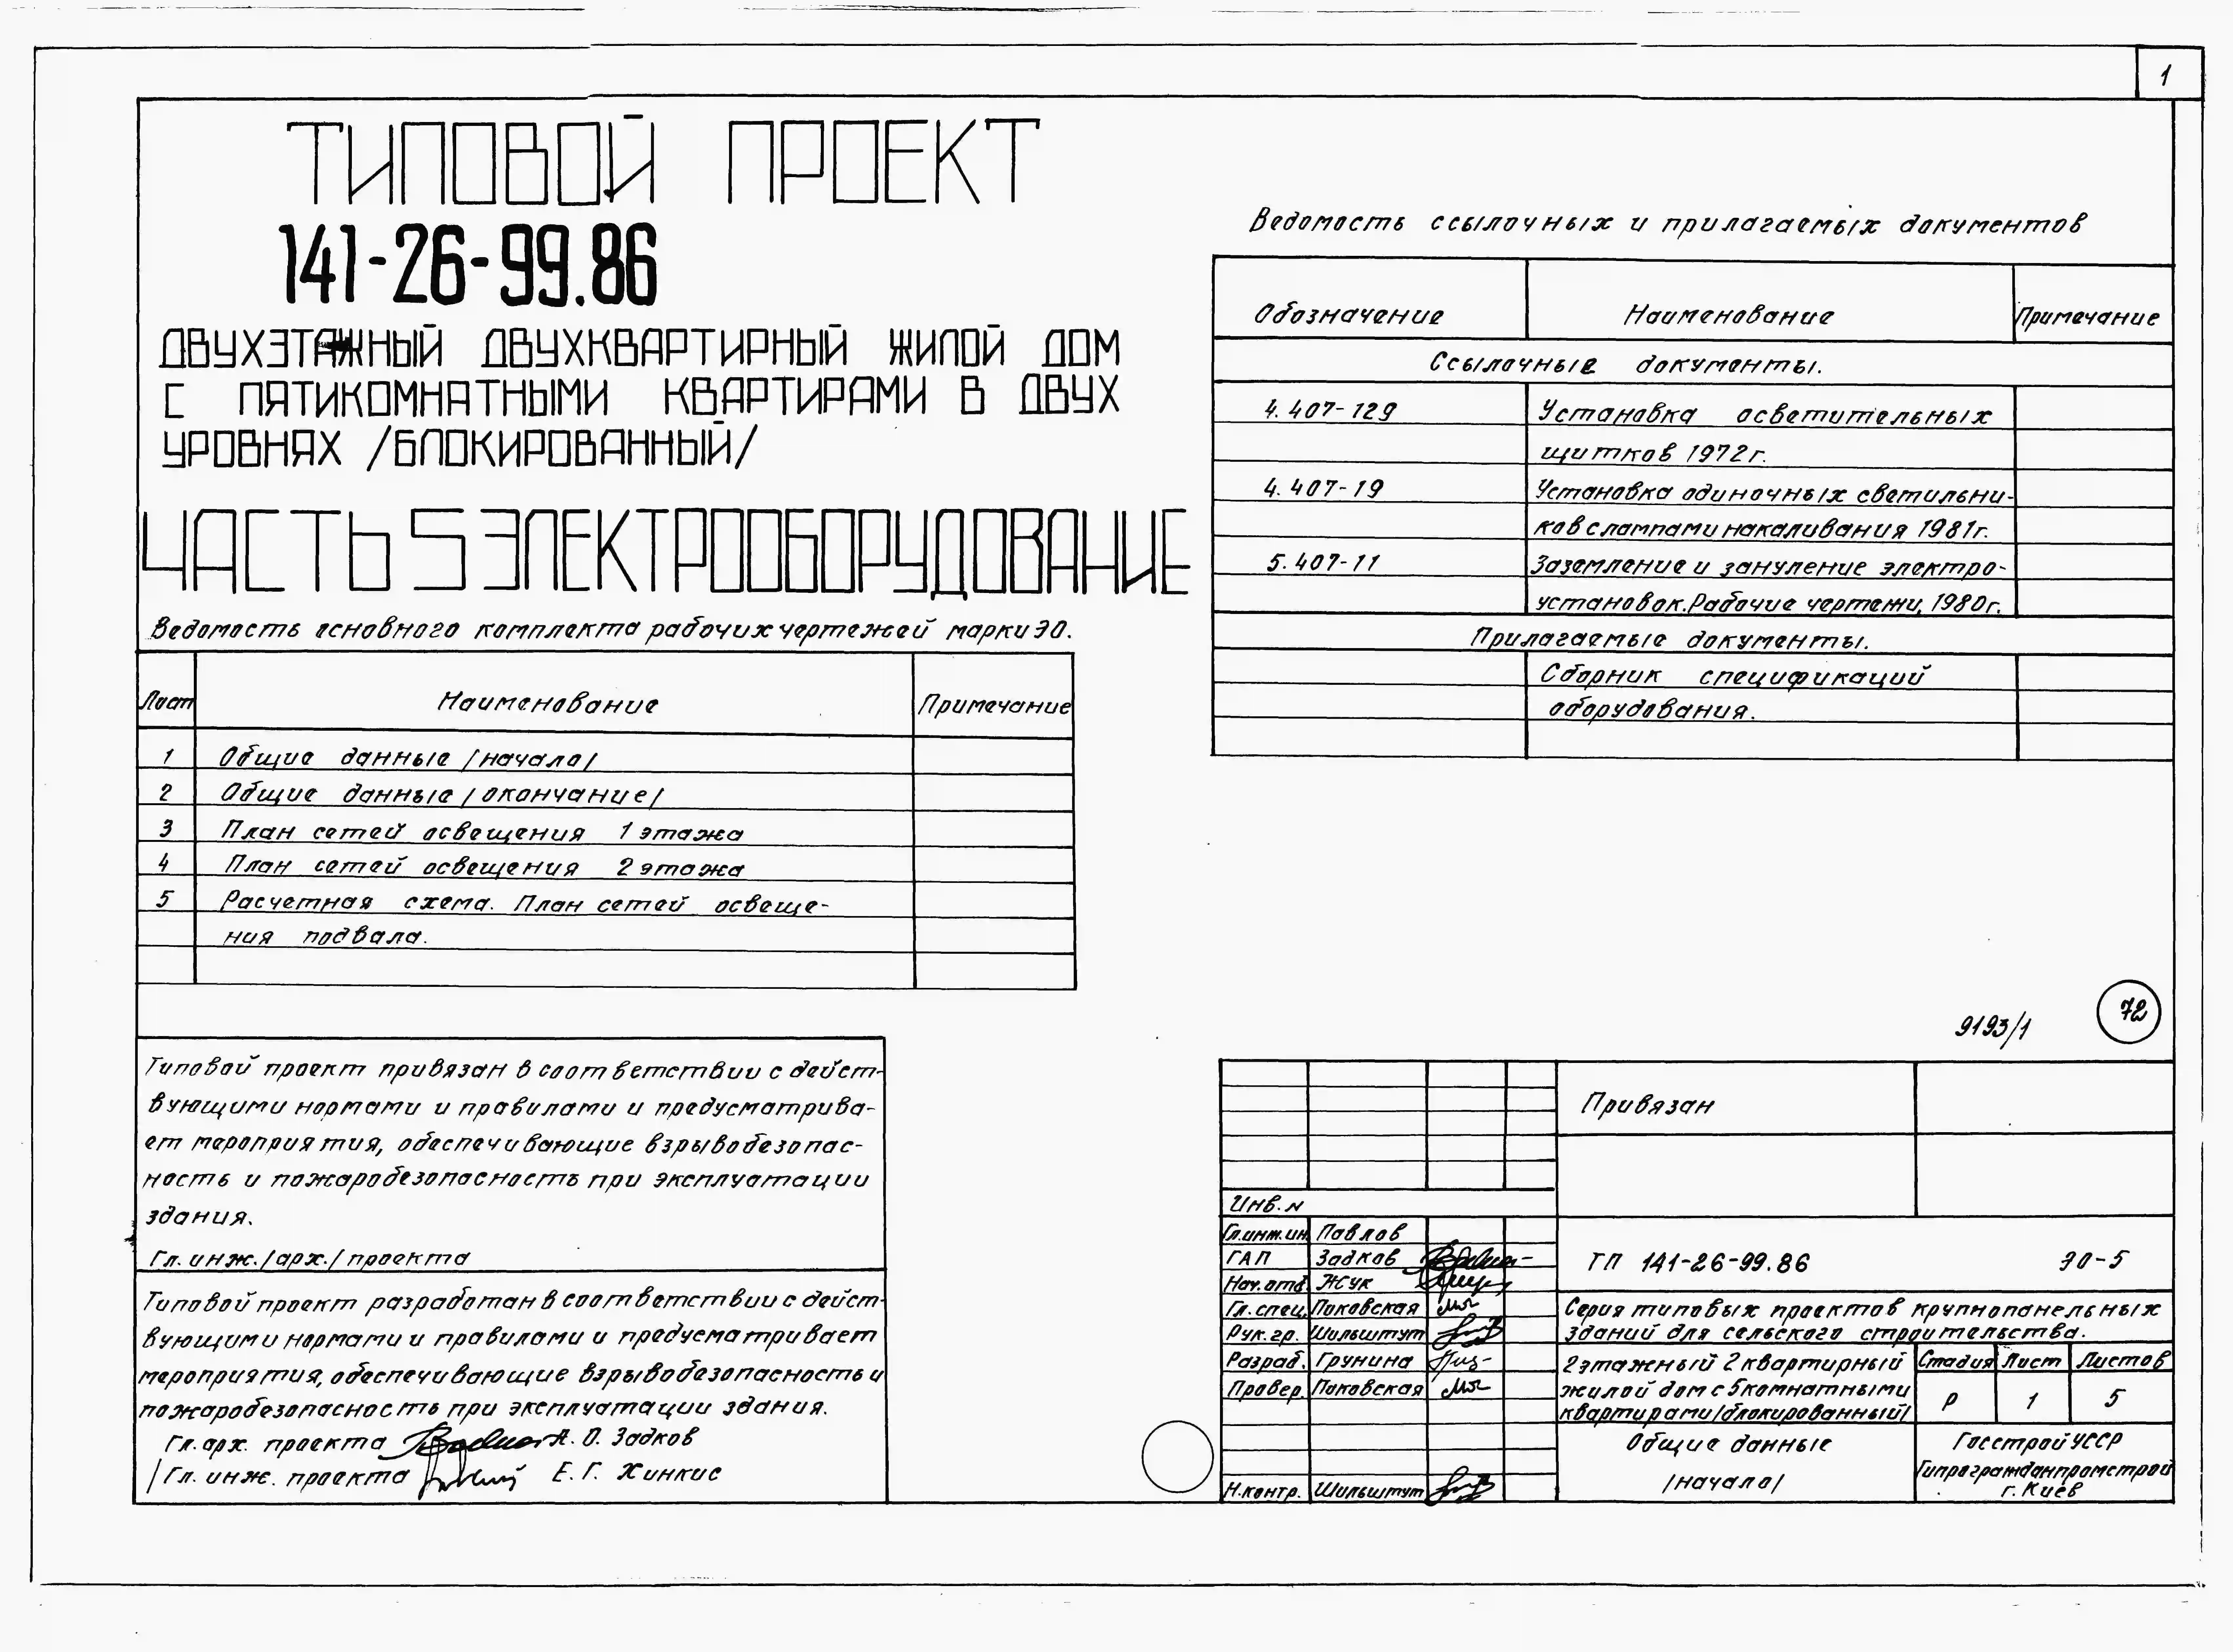 1
ТИПОВОЙ ПРОЕКТ
141-26-99.86
ДВУХЭТАЖНЫЙ ДВУХКВАРТИРНЫЙ ЖИЛОЙ ДОМ
С ПЯТИКОМНАТНЫМИ КВАРТИРАМИ В ДВУХ
УРОВНЯХ /БЛОКИРОВАННЫЙ/
ЧАСТЬ 5 ЭЛЕКТРООБОРУДОВАНИЕ
Ведомость основного комплекта рабочих чертежей марки ЭО.
Лист Наименование Примечание
1 Общие данные /начало/
2 Общие данные /окончание/
3 План сетей освещения 1 этажа
4 План сетей освещения 2 этажа
5 Расчетная схема. План сетей освеще-
ния подвала.
Типовой проект привязан в соответствии с дейст-
вующими нормами и правилами и предусматрива-
ет мероприятия, обеспечивающие взрывобезопас-
ность и пожаробезопасность при эксплуатации
здания.
Гл. инж. /арх./ проекта
Типовой проект разработан в соответствии с дейст-
вующими нормами и правилами и предусматривает
мероприятия, обеспечивающие взрывобезопасность и
пожаробезопасность при эксплуатации здания.
Гл. арх. проекта А. О. Задков
/Гл. инж. проекта Е. Г. Хинкис
Ведомость ссылочных и прилагаемых документов
Обозначение Наименование Примечание
Ссылочные документы.
4.407-129 Установка осветительных
щитков 1972г.
4.407-19 Установка одиночных светильни-
ков с лампами накаливания 1981г.
5.407-11 Заземление и зануление электро-
установок. Рабочие чертежи, 1980г.
Прилагаемые документы.
Сборник спецификаций
оборудования.
9193/1 72
Привязан
Инв. N
Гл.инж.ин. Павлов
ГАП Задков
Нач.отд. Жук
Гл.спец. Поковская
Рук.гр. Шильштут
Разраб. Грунина
Провер. Поковская
Н.контр. Шильштут
ТП 141-26-99.86 ЭО-5
Серия типовых проектов крупнопанельных
зданий для сельского строительства.
2этажный 2квартирный
жилой дом с 5комнатными
квартирами/блокированный/
Стадия Лист Листов
Р 1 5
Общие данные
/начало/
Госстрой УССР
Гипрогражданпромстрой
г. Киев